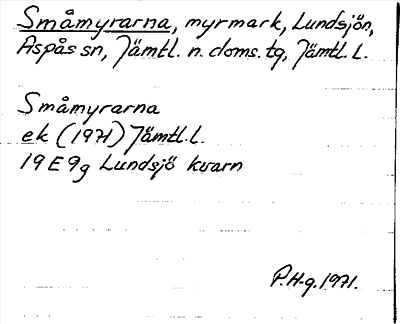 Småmyrarna, myrmark, Lundsjön,
Aspås sn, Jämtl. n. doms. tg, Jämtl. l.
Småmyrarna
ek (1971) Jämtl. l.
19 E 9g Lundsjö kvarn
P.H-g. 1971.